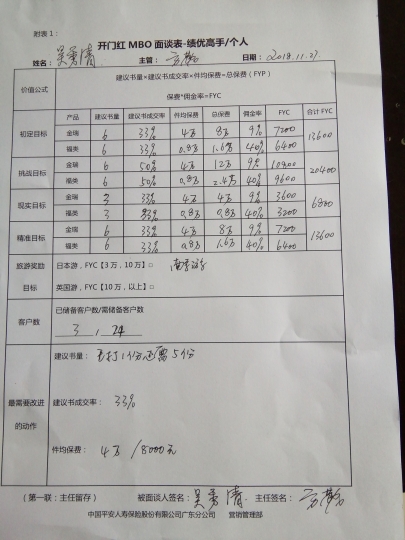 附表1：
开门红 MBO 面谈表-绩优高手/个人
姓名： 主管： 日期：2018.11.27.
价值公式
建议书量×建议书成交率×件均保费=总保费（FYP）
保费*佣金率=FYC
产品 建议书量 建议书成交率 件均保费 总保费 佣金率 FYC 合计 FYC
初定目标 金瑞 6 33% 4万 8万 9% 7200 13600
福类 6 33% 0.8万 1.6万 40% 6400
挑战目标 金瑞 6 50% 4万 12万 9% 10800 20400
福类 6 50% 0.8万 2.4万 40% 9600
现实目标 金瑞 3 33% 4万 4万 9% 3600 6800
福类 3 33% 0.8万 0.8万 40% 3200
精准目标 金瑞 6 33% 4万 8万 9% 7200 13600
福类 6 33% 0.8万 1.6万 40% 6400
旅游奖励目标
日本游，FYC【3万，10万】□
英国游，FYC【10万，以上】□
客户数
已储备客户数/需储备客户数
3 , 24
最需要改进的动作
建议书量： 打1份还需5份
建议书成交率： 33%
件均保费： 4万 /8000元
（第一联：主任留存） 被面谈人签名： 主任签名：
中国平安人寿保险股份有限公司广东分公司 营销管理部